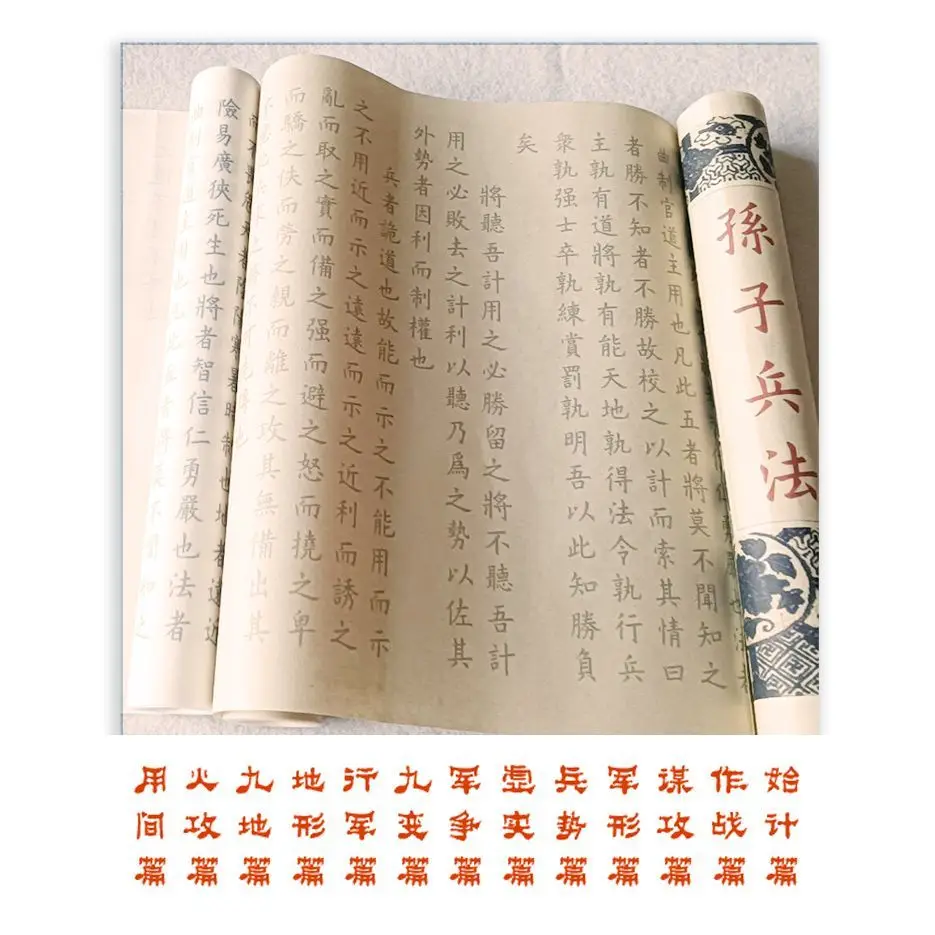 孫子兵法
也法者
曲制官道主用也凡此五者將莫不聞知之
者勝不知者不勝故校之以計而索其情曰
主孰有道將孰有能天地孰得法令孰行兵
衆孰强士卒孰練賞罰孰明吾以此知勝負
矣
將聽吾計用之必勝留之將不聽吾計
用之必敗去之計利以聽乃爲之勢以佐其
外勢者因利而制權也
兵者詭道也故能而示之不能用而示
之不用近而示之遠遠而示之近利而誘之
亂而取之實而備之强而避之怒而撓之卑
而驕之佚而勞之親而離之攻其無備出其
時制也地者遠近
險易廣狹死生也將者智信仁勇嚴也法者
始计篇
作战篇
谋攻篇
军形篇
兵势篇
虚实篇
军争篇
九变篇
行军篇
地形篇
九地篇
火攻篇
用间篇